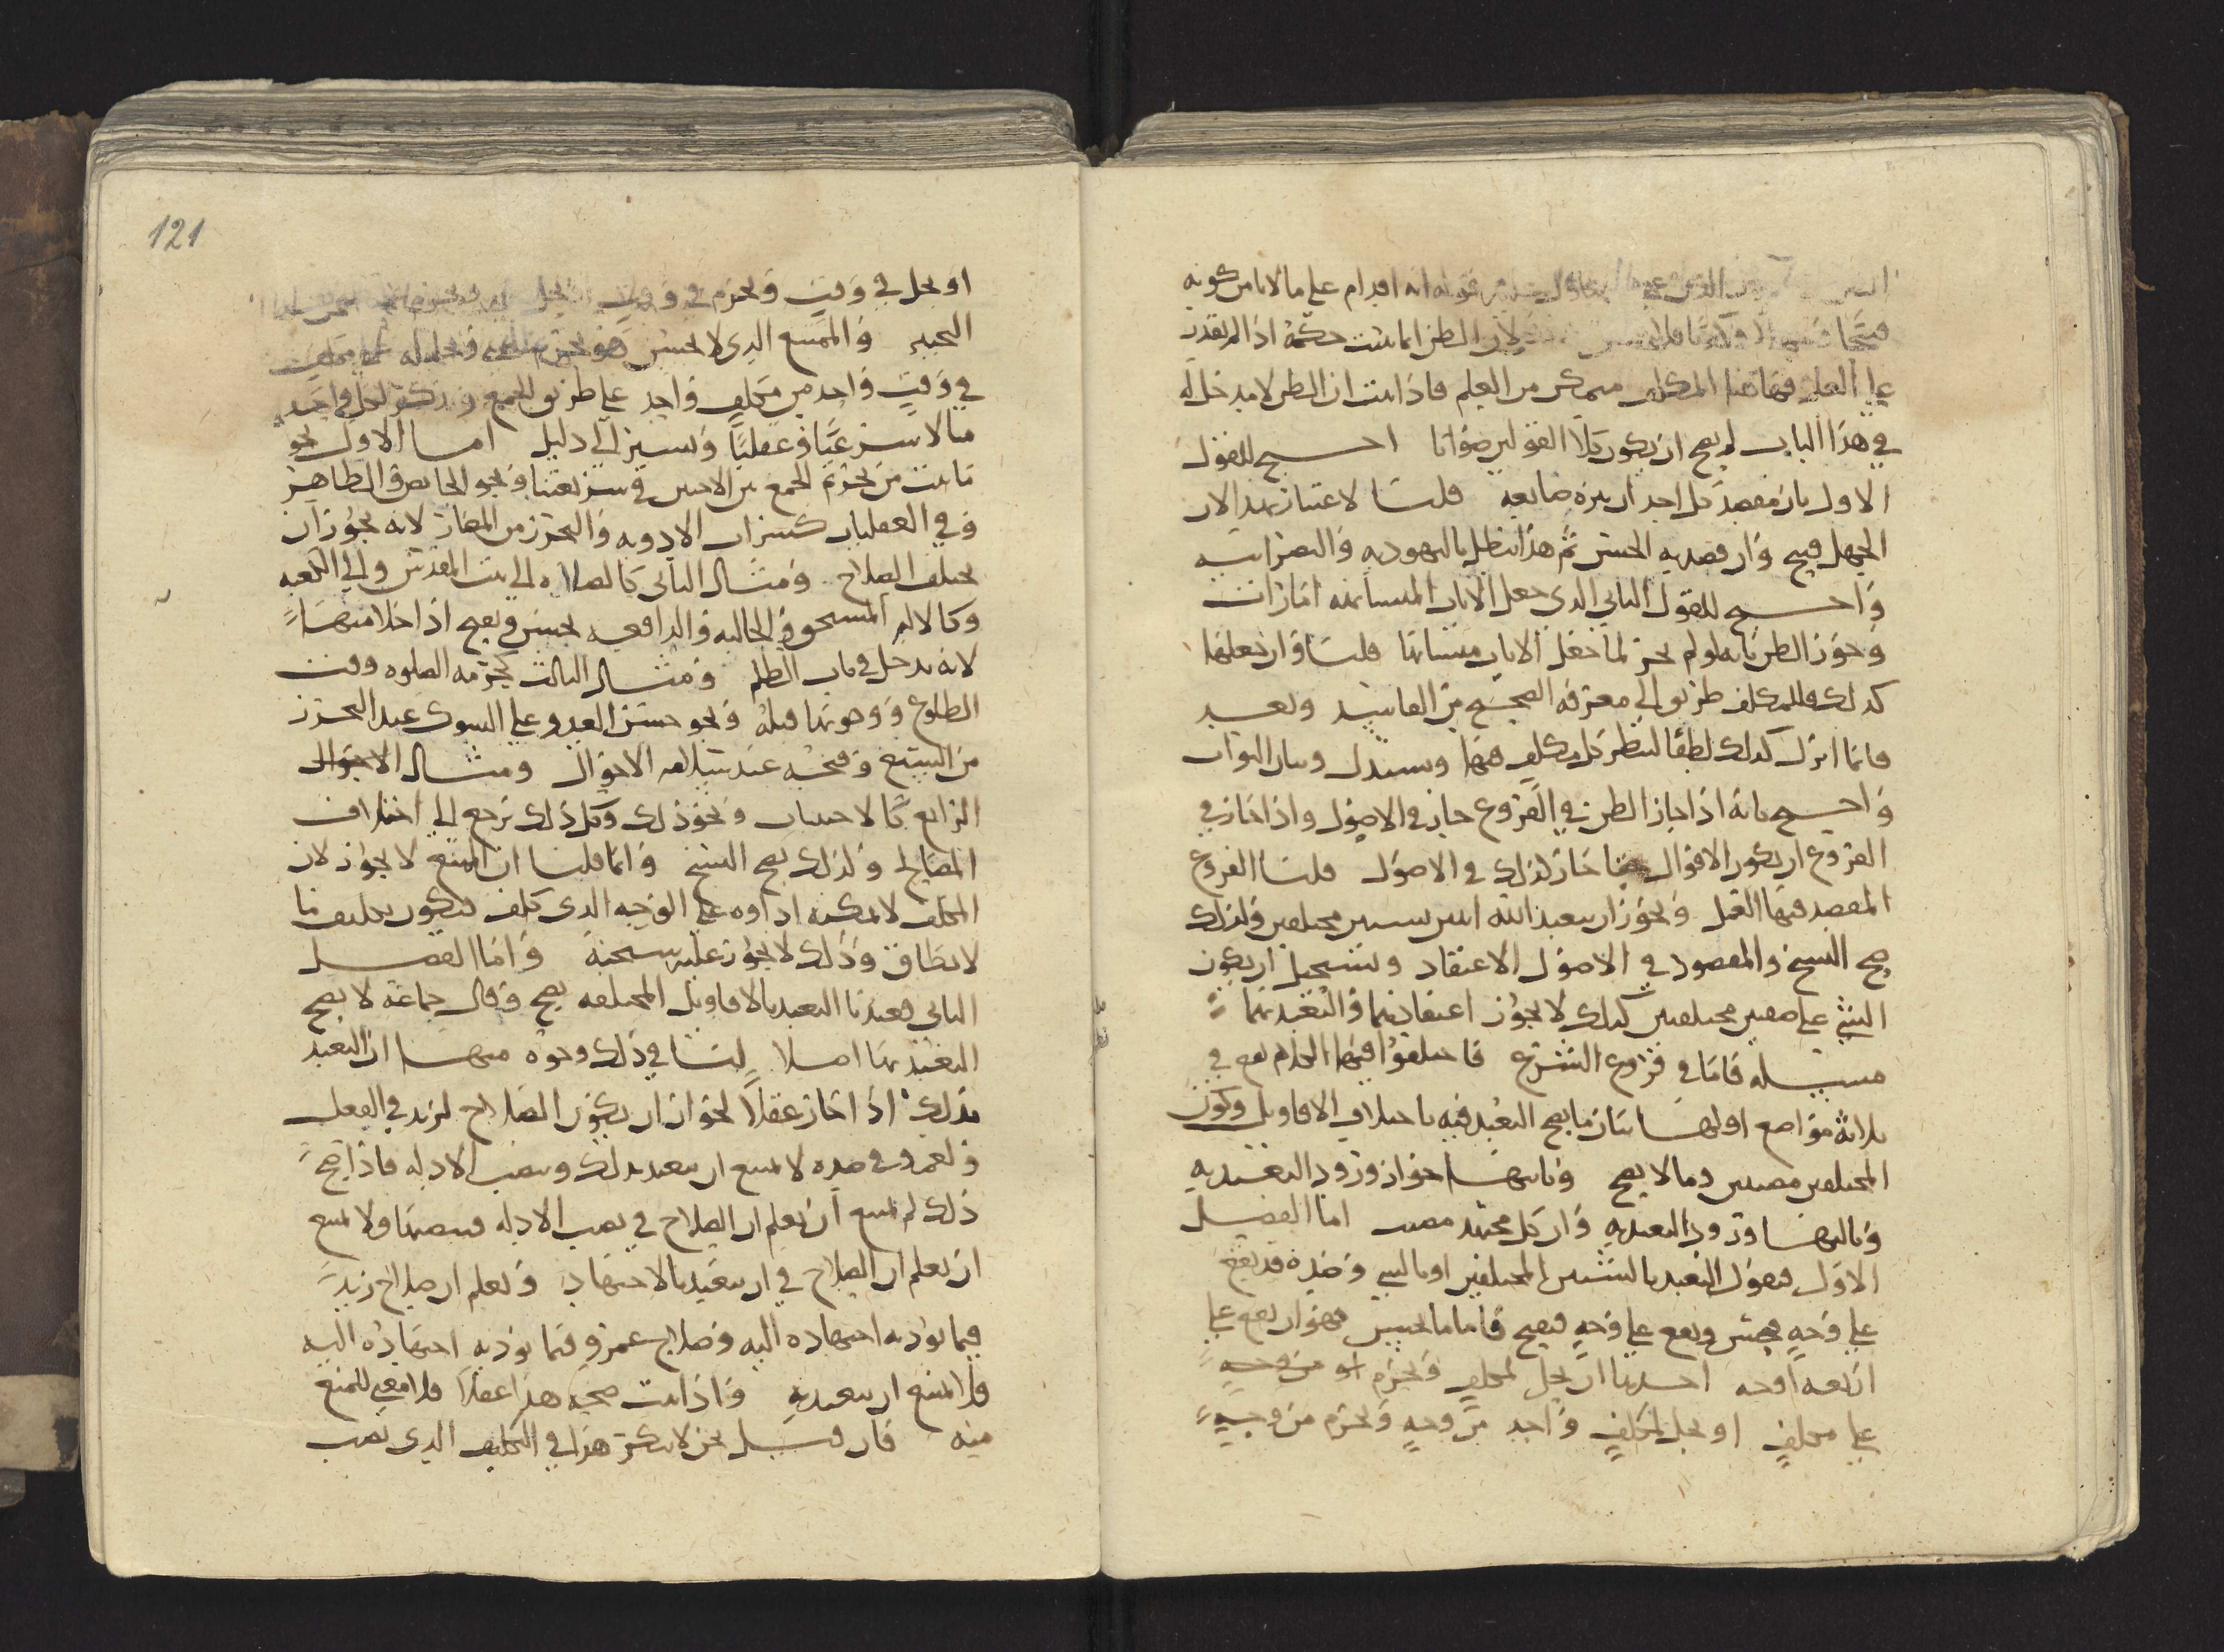 انه اقدام على ما لا يامن كونه
لان الظن انما يثبت حكمه اذا لم يقدر
على العلم فهاهنا المكلف متمكن من العلم فاذا ثبت ان الظن لا مدخل له
في هذا الباب لم يصح ان يكون كلا القولين صوابا احتج للقول
الاول بان مقصد كل احد تنزيه صانعه قلنا لا اعتبار بهذا لان
الجهل قبيح وان قصد به الحسن ثم هذا يبطل باليهودية والنصرانية
واحتج للقول الثاني الذي جعل الايات المتشابهة امارات
وجوز الظن بانه لو لم يجز لما جعل الايات متشابها قلنا وان جعلها
كذلك فللمكلف طريق الى معرفة الصحيح من الفاسد وبعد
فانما انزل كذلك لطفا لينظر كل مكلف فيها ويستدل وينال الثواب
واحتج بانه اذا جاز الظن في الفروع جاز في الاصول واذا جاز في
الفروع ان يكون الاقوال حقا جاز كذلك في الاصول قلنا الفروع
المقصد فيها العمل ويجوز ان يتعبد الله اثنين بشيئين مختلفين ولذلك
صح النسخ والمقصود في الاصول الاعتقاد ويستحيل ان يكون
الشي على صفتين مختلفتين كذلك لا يجوز اعتقادهما والتعبد بهما
مسئلة فاما في فروع الشرع فاختلفوا فيها الكلام يقع في
ثلاثة مواضع اولها بيان ما يصح التعبد فيه باختلاف الاقاويل وكون
المختلفين مصيبين وما لا يصح وثانيها جواز ورود التعبد به
وثالثها ورود التعبد به وان كل مجتهد مصيب اما الفصل
الاول فنقول التعبد بالشيئين المختلفين او بالشي وضده قد يقع
على وجه فيحسن ويقع على وجه فيقبح فاما ما يحسن فهو ان يقع على
اربعة اوجه احدها ان يحل لمكلف ويحرم من وجه
على مكلف او يحل لمكلف واحد من وجه ويحرم من وجه
121
او يحل في وقت ويحرم في وقت
التخيير والممتنع الذي لا يحسن هو تحريم شي وتحليله على مكلف
في وقت واحد من مكلف واحد على طريق الجمع ونذكر لكل واحد
مثالا شرعيا وعقليا ونشير الى دليل اما الاول نحو
ما ثبت من تحريم الجمع بين الاختين في شريعتنا ونحو الحايض والطاهر
وفي العقليات كشراب الادوية والتحرز من المضار لانه يجوز ان
يختلف الصلاح ومثال الثاني كالصلاة الى بيت المقدس والى الكعبة
وكالالم المستحق والجالبة والدافعة يحسن ويقبح اذا خلا منها
لانه يدخل في باب الظلم ومثال الثالث كحرمة الصلوة وقت
الطلوع ووجوبها قبله ونحو حسن العدو على الشوك عند التحرز
من السبع وقبحه عند سلامة الاحوال ومثال الاحوال
الرابع كالاحسان ونحو ذلك وكل ذلك يرجع الى اختلاف
المصالح ولذلك يصح النسخ وانما قلنا ان الممتنع لا يجوز لان
المكلف لا يمكنه اداوه على الوجه الذي كلف فيكون تكليف ما
لا يطاق وذلك لا يجوز عليه سبحانه واما الفصل
الثاني فعندنا التعبد بالاقاويل المختلفة يصح وقال جماعة لا يصح
التعبد بها اصلا لنا في ذلك وجوه منها ان التعبد
بذلك اذا جاز عقلا لجواز ان يكون الصلاح لزيد في الفعل
ولعمرو في ضده لا يمتنع ان يتعبد بذلك وينصب الادلة فاذا صح
ذلك لم يمتنع ان يعلم ان الصلاح في نصب الادلة فينصبها ولا يمتنع
ان يعلم ان الصلاح في ان يتعبد بالاجتهاد ويعلم ان صلاح زيد
فيما يودي اجتهاده اليه وصلاح عمرو فيما يودي اجتهاده اليه
فلا يمتنع ان يتعبد به واذا ثبت صحة هذا عقلا فلا معنى للمنع
منه فان قيل نحن لا ننكر هذا في التكليف الذي نصب